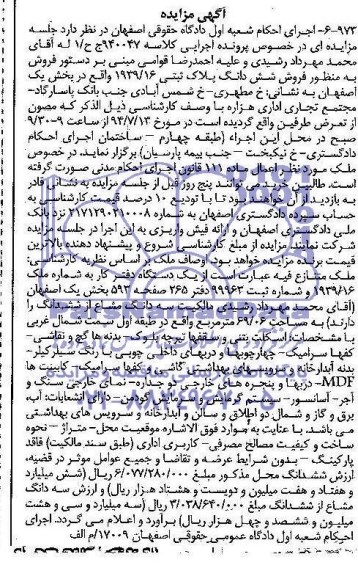 آگهی مزایده
۶-۹۷۳- اجرای احکام شعبه اول دادگاه حقوقی اصفهان در نظر دارد جلسه
مزایده ای در خصوص پرونده اجرایی کلاسه ۹۴۰۰۴۷ج ح/۱ له آقای
محمد مهرداد رشیدی و علیه احمدرضا قوامی مبنی بر دستور فروش
به منظور فروش شش دانگ پلاک ثبتی ۱۹۳۹/۱۶ واقع در بخش یک
اصفهان به نشانی: خ مطهری- خ شمس آبادی جنب بانک پاسارگاد-
مجتمع تجاری اداری هزاره با وصف کارشناسی ذیل الذکر که مصون
از تعرض طرفین واقع گردیده است در مورخ ۹۴/۷/۱۳ از ساعت ۹-۹/۳۰
صبح در محل این اجراء (طبقه چهارم - ساختمان اجرای احکام
دادگستری- خ نیکبخت - جنب بیمه پارسیان) برگزار نماید. در خصوص
ملک مورد نظر اعمال ماده قانون اجرای احکام مدنی صورت گرفته
است. طالبین خریدمی توانند پنج روز قبل از جلسه مزایده به نشانی فادر
به بازدید از آن خواهند بود تا با تودیع ۱۰ درصد قیمت کارشناسی به
حساب سپرده دادگستری اصفهان به شماره نزد بانک
ملی دادگستری اصفهان و ارائه فیش واریزی به این اجرا در جلسه مزایده
شرکت نمایند. مزایده از مبلغ کارشناسی شروع و پیشنهاد دهنده بالاترین
قیمت برنده مزایده خواهد بود. اوصاف ملک بر اساس نظریه کارشناسی:
ملک متنازع فیه عبارت است از یک دستگاه دفتر کار به شماره ملک
۱۹۳۹/۱۶ و شماره ثبت ۹۹۹۶۳ دفتر ۲۶۵ صفحه ۵۹۲ بخش یک اصفهان
(آقای محمد مهرداد رشیدی مالکیت سه دانگ مشاع از ششدانگ را
دارند) به مساحت ۶۹/۰۶ مترمربع واقع در طبقه اول سمت شمال غربی
با مشخصات: اسکلت بتنی و سقفها تیرچه بلوک- بدنه ها گچ و نقاشی-
کفها سرامیک- چهارچوبها و دربهای داخلی چوبی با رنگ سیلر کیلر-
بدنه آبدارخانه و سرویسهای بهداشتی کاشی- کفها سرامیک- کابینت ها
MDF- دربها و پنجره های خارجی دو جداره- نمای خارجی سنگ و
آجر- آسانسور- سیستم گرمایش و سرمایش دارای انشعابات: آب،
برق و گاز و شمال دو اطلاق و سالن و آبدارخانه و سرویس های بهداشتی
می باشد. با عنایت به موارد فوق الاشاره موقعیت محل- متراژ - نحوه
ساخت و کیفیت مصالح مصرفی- کاربری اداری (طبق سند مالکیت) فاقد
پارکینگ - بدون شرایط عرضه و تقاضا و جمیع عوامل موثر در قضیه،
ارزش ششدانگ محل مذکور مبلغ ۶/۰۷۷/۲۸۰/۰۰۰ ریال (شش میلیارد
و هفتاد و هفت میلیون و دویست و هشتاد هزار ریال) و ارزش سه دانگ
مشاع از ششدانگ مبلغ ۳/۰۳۸/۶۴۰/۰۰۰ ریال (سه میلیارد و سی و هشت
میلیون و ششصد و چهل هزار ریال) برآورد و اعلام می گردد. اجرای
احکام شعبه اول دادگاه عمومی حقوقی اصفهان ۱۷۰۰۹/م الف